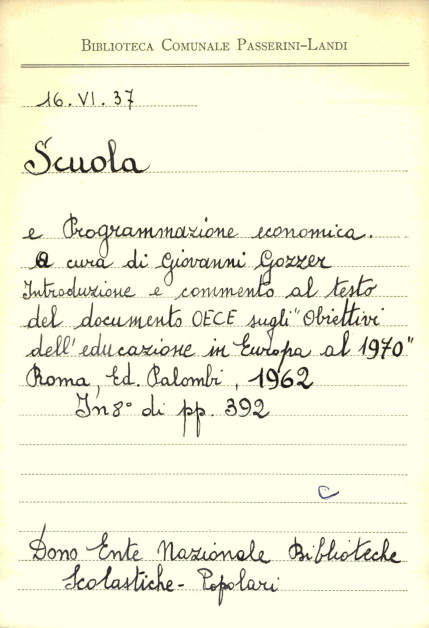 BIBLIOTECA COMUNALE PASSERINI-LANDI
16. VI. 37
Scuola
e Programmazione economica.
A cura di Giovanni Gozzer
Introduzione e commento al testo
del documento OECE sugli "Obiettivi
dell'educazione in Europa al 1970"
Roma, Ed. Palombi, 1962
In 8° di pp. 392
C
Dono Ente Nazionale Biblioteche
Scolastiche - Popolari